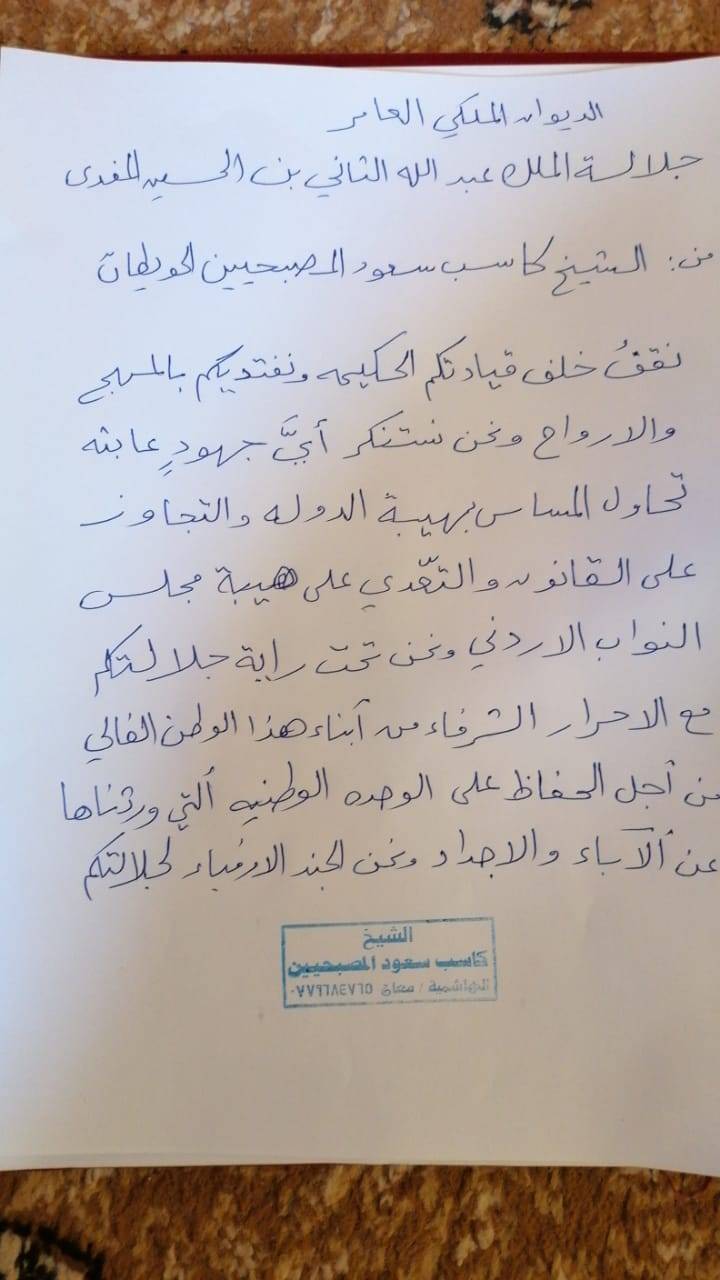 الديوان الملكي العامر
جلالة الملك عبد الله الثاني بن الحسين المفدى
من: الشيخ كاسب سعود المصبحيين الحويطات
نقفُ خلف قيادتكم الحكيمه ونفتديكم بالمهج
والارواح ونحن نستنكر أيَّ جهودٍ عابثه
تحاول المساس بهيبة الدوله والتجاوز
على القانون والتعّدي على هيبة مجلس
النواب الاردني ونحن تحت راية جلالتكم
مع الاحرار الشرفاء من أبناء هذا الوطن الغالي
من أجل الحفاظ على الوحده الوطنيه ألتي ورثناها
عن ألآباء والاجداد ونحن الجند الاوفياء لجلالتكم
الشيخ
كاسب سعود المصبحيين
الهاشمية / معان ٠٧٧٩٦٨٤٧٦٥